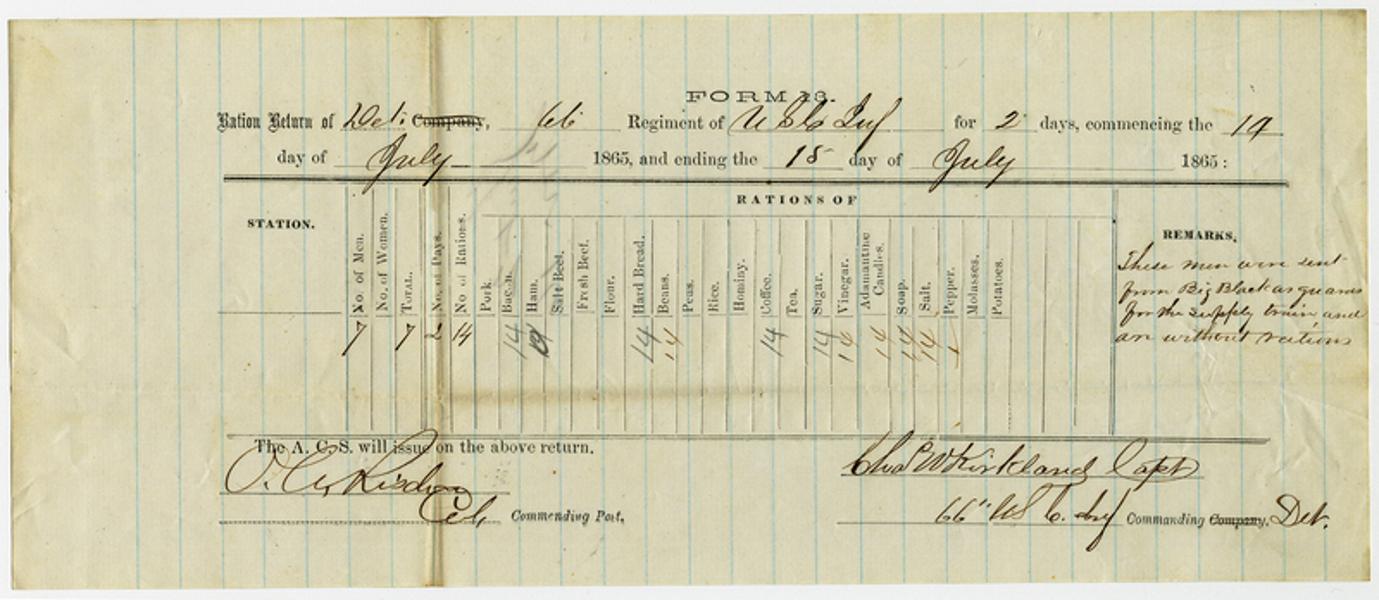 FORM 13.
Ration Return of Det. Company, 66 Regiment of U S C Inf for 2 days, commencing the 19
day of July 1865, and ending the 18 day of July 1865:
RATIONS OF
STATION.
No. of Men.
No. of Women.
Total.
No. of Days.
No of Rations.
Pork
Bacon.
Ham.
Salt Beef.
Fresh Beef.
Flour.
Hard Bread.
Beans.
Peas.
Rice.
Hominy.
Coffee.
Tea.
Sugar.
Vinegar.
Adamantine Candles.
Soap.
Salt.
Pepper.
Molasses.
Potatoes.
REMARKS.
7 7 2 14 14 14 14 14 14 14 14 14 14
These men were sent
from Big Black as guards
for the supply train and
are without rations
The A. C. S. will issue on the above return.
Chas W Kirkland Capt
Col. Commending Post.
66" US C. Inf Commanding Company. Det.